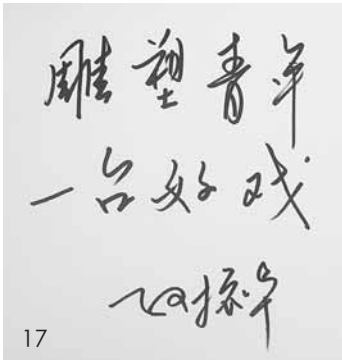 雕塑青年
一台好戏
17